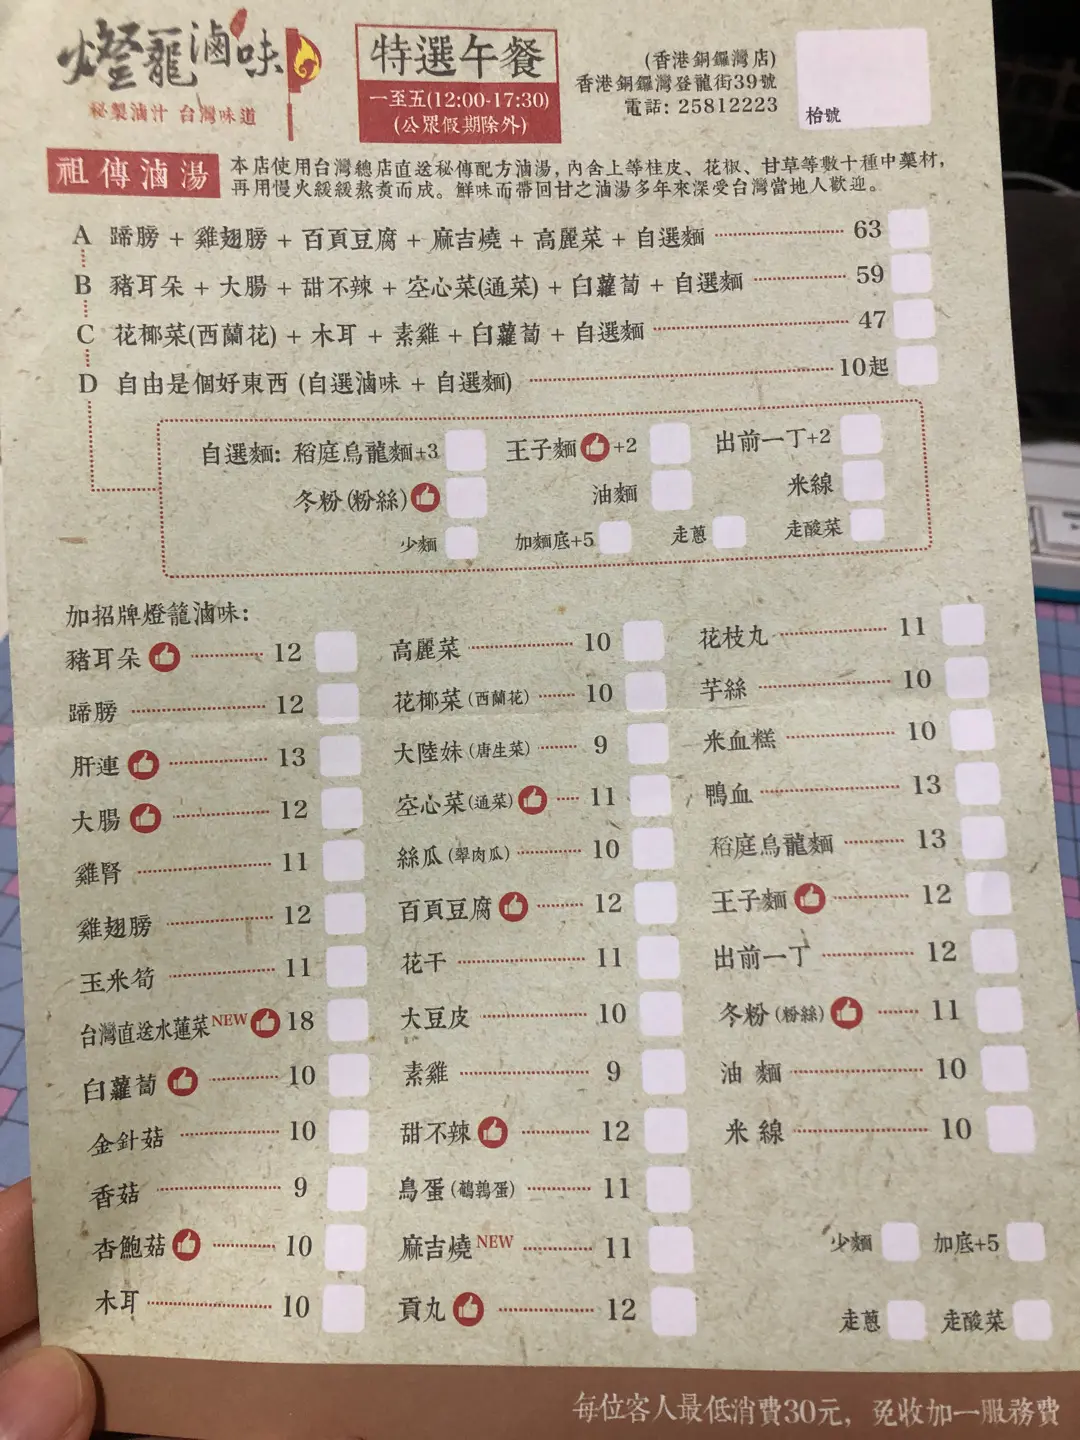 燈籠滷味
秘製滷汁 台灣味道
特選午餐
一至五(12:00-17:30)
(公眾假期除外)
(香港銅鑼灣店)
香港銅鑼灣登龍街39號
電話: 25812223
枱號
祖傳滷湯
本店使用台灣總店直送秘傳配方滷湯，內含上等桂皮、花椒、甘草等數十種中藥材，
再用慢火緩緩熬煮而成。鮮味而帶回甘之滷湯多年來深受台灣當地人歡迎。
A 蹄膀 + 雞翅膀 + 百頁豆腐 + 麻吉燒 + 高麗菜 + 自選麵 63
B 豬耳朵 + 大腸 + 甜不辣 + 空心菜(通菜) + 白蘿蔔 + 自選麵 59
C 花椰菜(西蘭花) + 木耳 + 素雞 + 白蘿蔔 + 自選麵 47
D 自由是個好東西 (自選滷味 + 自選麵) 10起
自選麵: 稻庭烏龍麵+3 王子麵 +2 出前一丁+2
冬粉(粉絲) 油麵 米線
少麵 加麵底+5 走蔥 走酸菜
加招牌燈籠滷味:
豬耳朵 12
蹄膀 12
肝連 13
大腸 12
雞腎 11
雞翅膀 12
玉米筍 11
台灣直送水蓮菜 NEW 18
白蘿蔔 10
金針菇 10
香菇 9
杏鮑菇 10
木耳 10
高麗菜 10
花椰菜(西蘭花) 10
大陸妹(唐生菜) 9
空心菜(通菜) 11
絲瓜(翠肉瓜) 10
百頁豆腐 12
花干 11
大豆皮 10
素雞 9
甜不辣 12
鳥蛋(鵪鶉蛋) 11
麻吉燒 NEW 11
貢丸 12
花枝丸 11
芋絲 10
米血糕 10
鴨血 13
稻庭烏龍麵 13
王子麵 12
出前一丁 12
冬粉(粉絲) 11
油麵 10
米線 10
少麵 加底+5
走蔥 走酸菜
每位客人最低消費30元，免收加一服務費